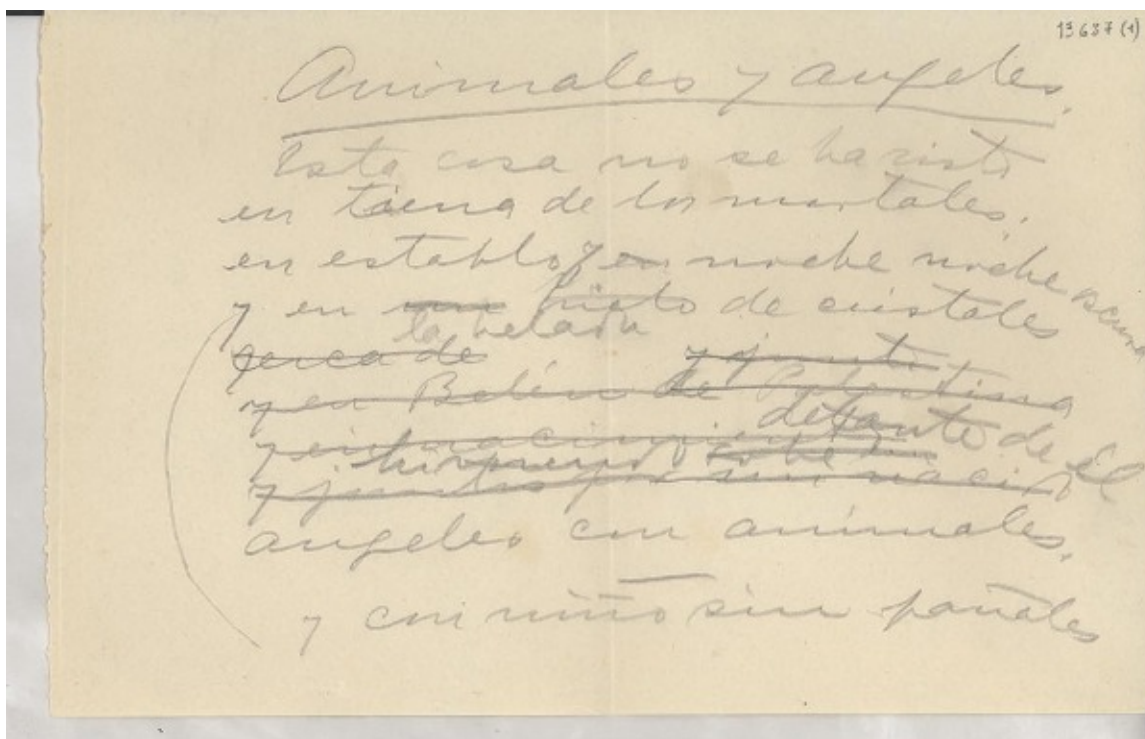 13637(1)
Animales y angeles.
Esta cosa no se ha visto
en tierra de los mortales.
en establo y en noche noche oscura
y en un de cristales
la helada
cerca de y junto
y en Belén de Palestina
delante de él
y
y junto sin nacido
angeles con animales.
y con niño sin pañales